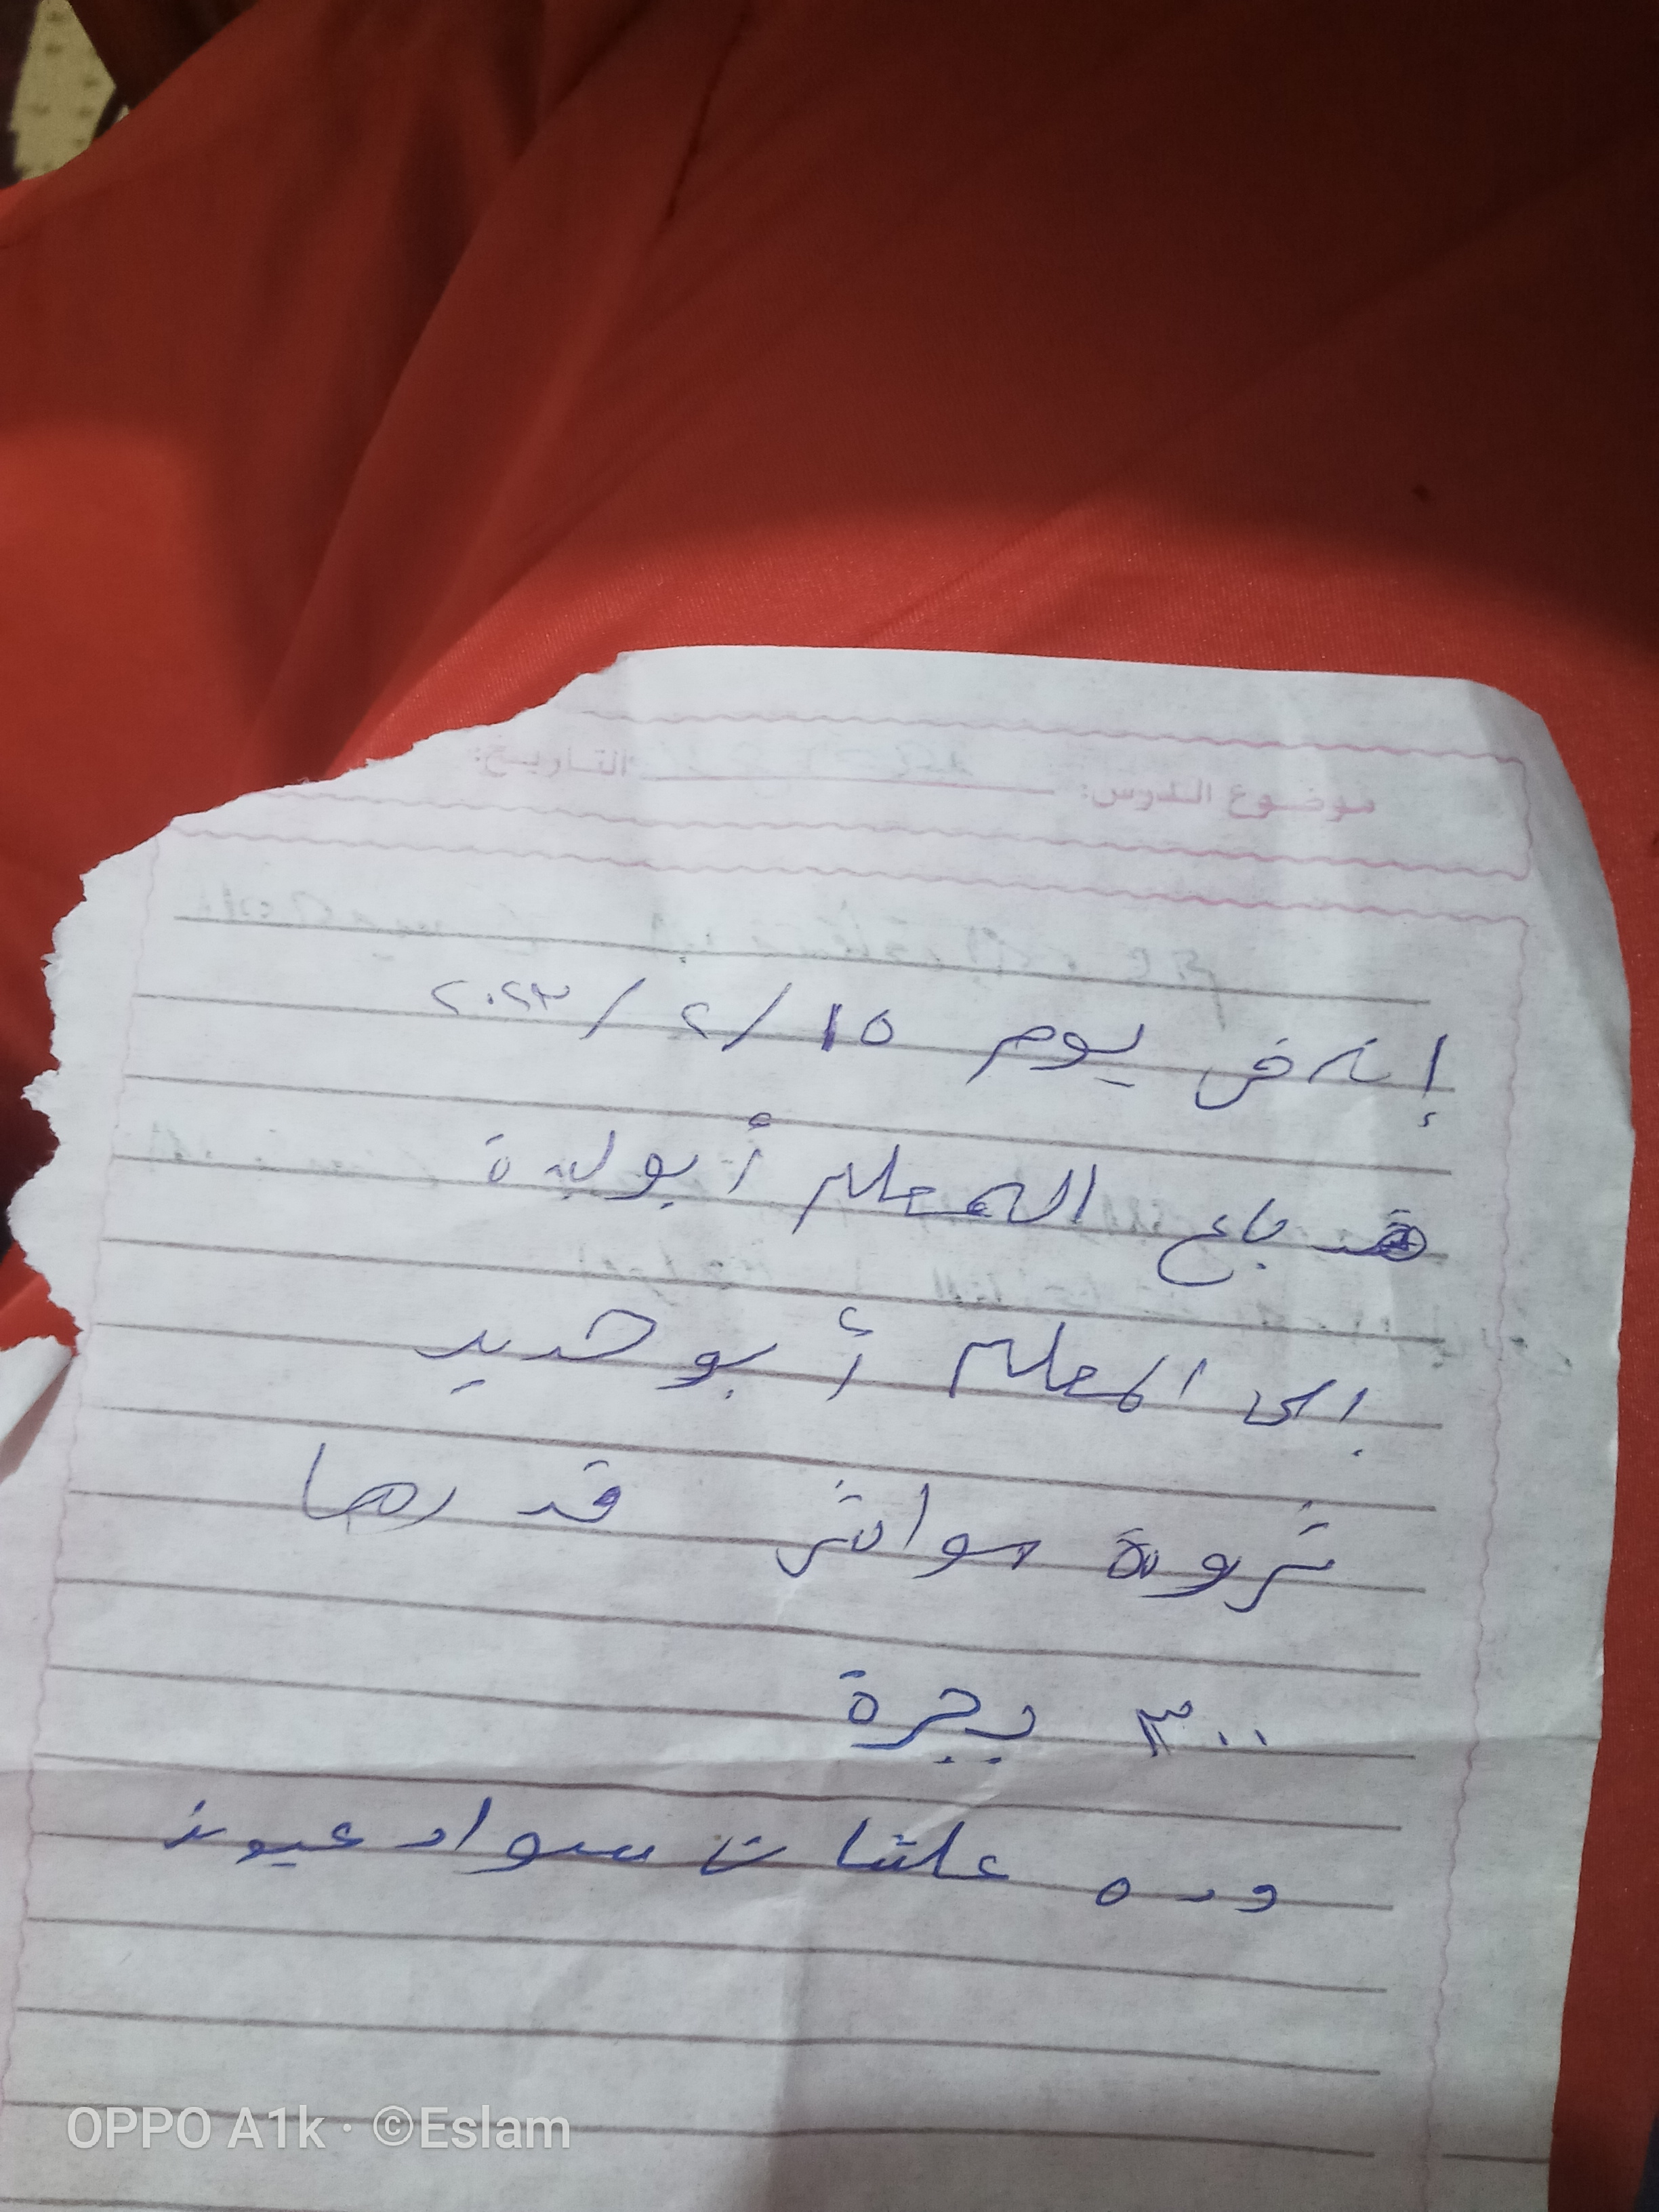 موضوع الدرس: التاريخ:
إنه في يوم ١٥ / ٢ / ٢٠٢٣
قد باع المعلم أبو لبدة
إلى المعلم أبو حديد
ثروة مواشى قدرها
٣٠٠ بجرة
وده علشان سواد عيونه
OPPO A1k · ©Eslam